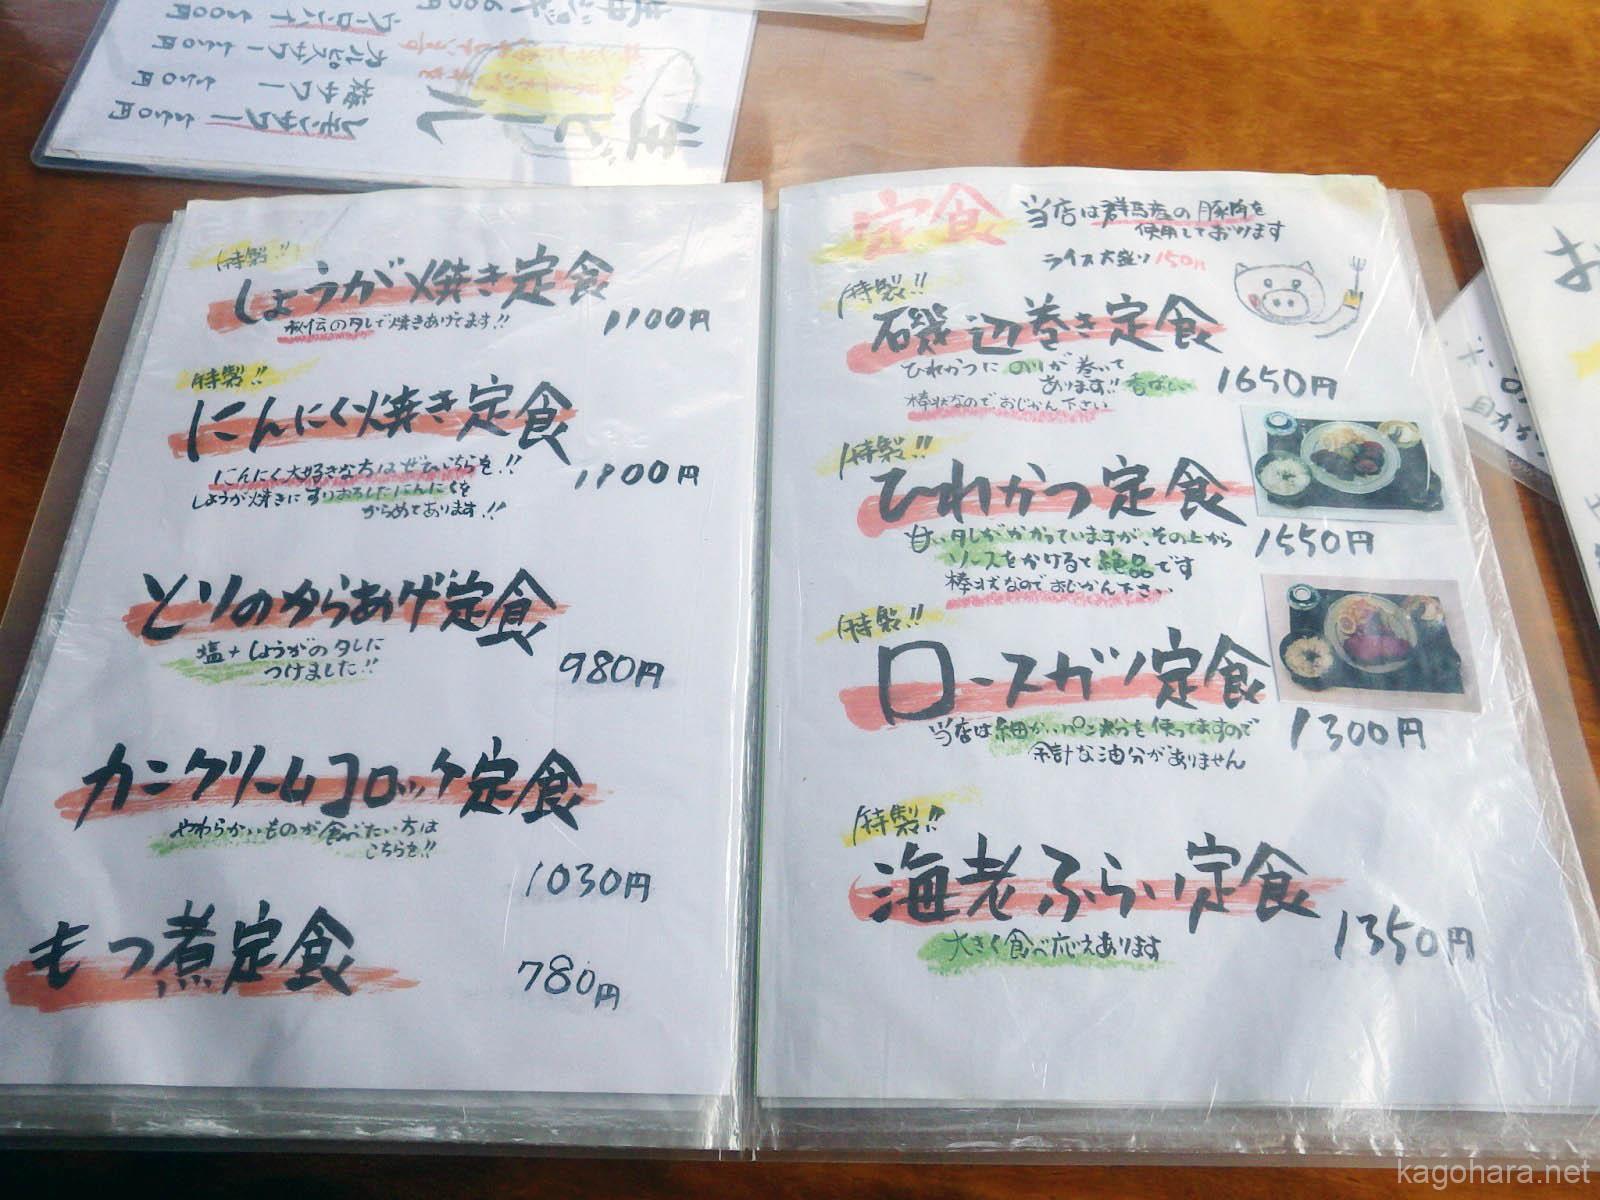 生ビール
レモンサワー 550円
梅サワー 550円
カルピスサワー 550円
ウーロンハイ 500円
生中ジョッキ 600円
特製!!
しょうが焼き定食
秘伝のタレで焼きあげてます!!
1100円
特製!!
にんにく焼き定食
にんにく大好きな方はぜひこちらを!!
しょうが焼きにすりおろしたにんにくを
からめてあります!!
1900円
とりのからあげ定食
塩+しょうがのタレに
つけました!!
980円
カニクリームコロッケ定食
やわらかいものが食べたい方は
こちらを!!
1030円
もつ煮定食
780円
定食
当店は群馬産の豚肉を
使用しております
ライス大盛り150円
特製!!
磯辺巻き定食
ひれかつにのりが巻いて
あります!!香ばしい
棒状なのでおじかん下さい
1650円
特製!!
ひれかつ定食
甘いタレがかかっていますが、その上から
ソースをかけると絶品です
棒状なのでおじかん下さい
1550円
特製!!
ロースカツ定食
当店は細かいパン粉を使ってますので
余計な油分がありません
1300円
特製!!
海老ふらい定食
大きく食べ応えあります
1350円
kagohara.net